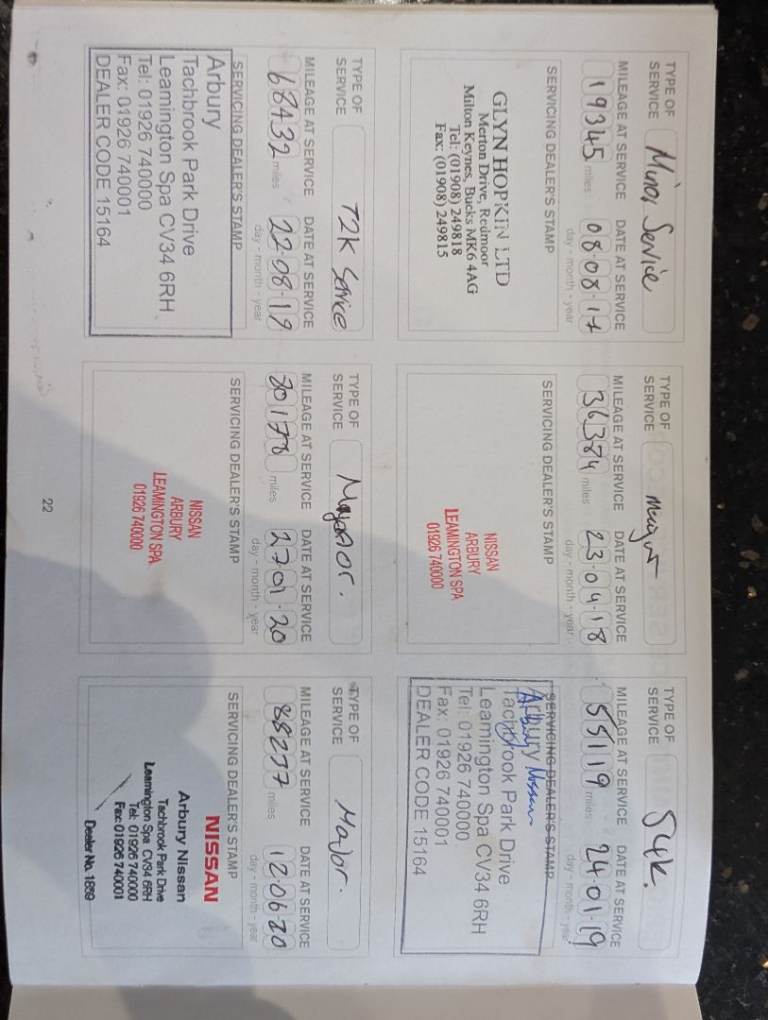 TYPE OF SERVICE Minor Service
MILEAGE AT SERVICE DATE AT SERVICE
19345 miles 08·08·17
day - month - year
SERVICING DEALER'S STAMP
GLYN HOPKIN LTD
Merton Drive, Redmoor
Milton Keynes, Bucks MK6 4AG
Tel: (01908) 249818
Fax: (01908) 249815
TYPE OF SERVICE Major
MILEAGE AT SERVICE DATE AT SERVICE
36384 miles 23·04·18
day - month - year
SERVICING DEALER'S STAMP
NISSAN
ARBURY
LEAMINGTON SPA
01926 740000
TYPE OF SERVICE 54K.
MILEAGE AT SERVICE DATE AT SERVICE
55119 miles 24·01·19
day - month - year
SERVICING DEALER'S STAMP
Arbury Nissan
Tachbrook Park Drive
Leamington Spa CV34 6RH
Tel: 01926 740000
Fax: 01926 740001
DEALER CODE 15164
TYPE OF SERVICE 72K Service
MILEAGE AT SERVICE DATE AT SERVICE
68432 miles 22·08·19
day - month - year
SERVICING DEALER'S STAMP
Arbury
Tachbrook Park Drive
Leamington Spa CV34 6RH
Tel: 01926 740000
Fax: 01926 740001
DEALER CODE 15164
TYPE OF SERVICE
MILEAGE AT SERVICE DATE AT SERVICE
miles 27·01·20
day - month - year
SERVICING DEALER'S STAMP
NISSAN
ARBURY
LEAMINGTON SPA
01926 740000
TYPE OF SERVICE Major.
MILEAGE AT SERVICE DATE AT SERVICE
88277 miles 12·06·20
day - month - year
SERVICING DEALER'S STAMP
NISSAN
Arbury Nissan
Tachbrook Park Drive
Leamington Spa CV34 6RH
Tel: 01926 740000
Fax: 01926 740001
Dealer No. 1669
22